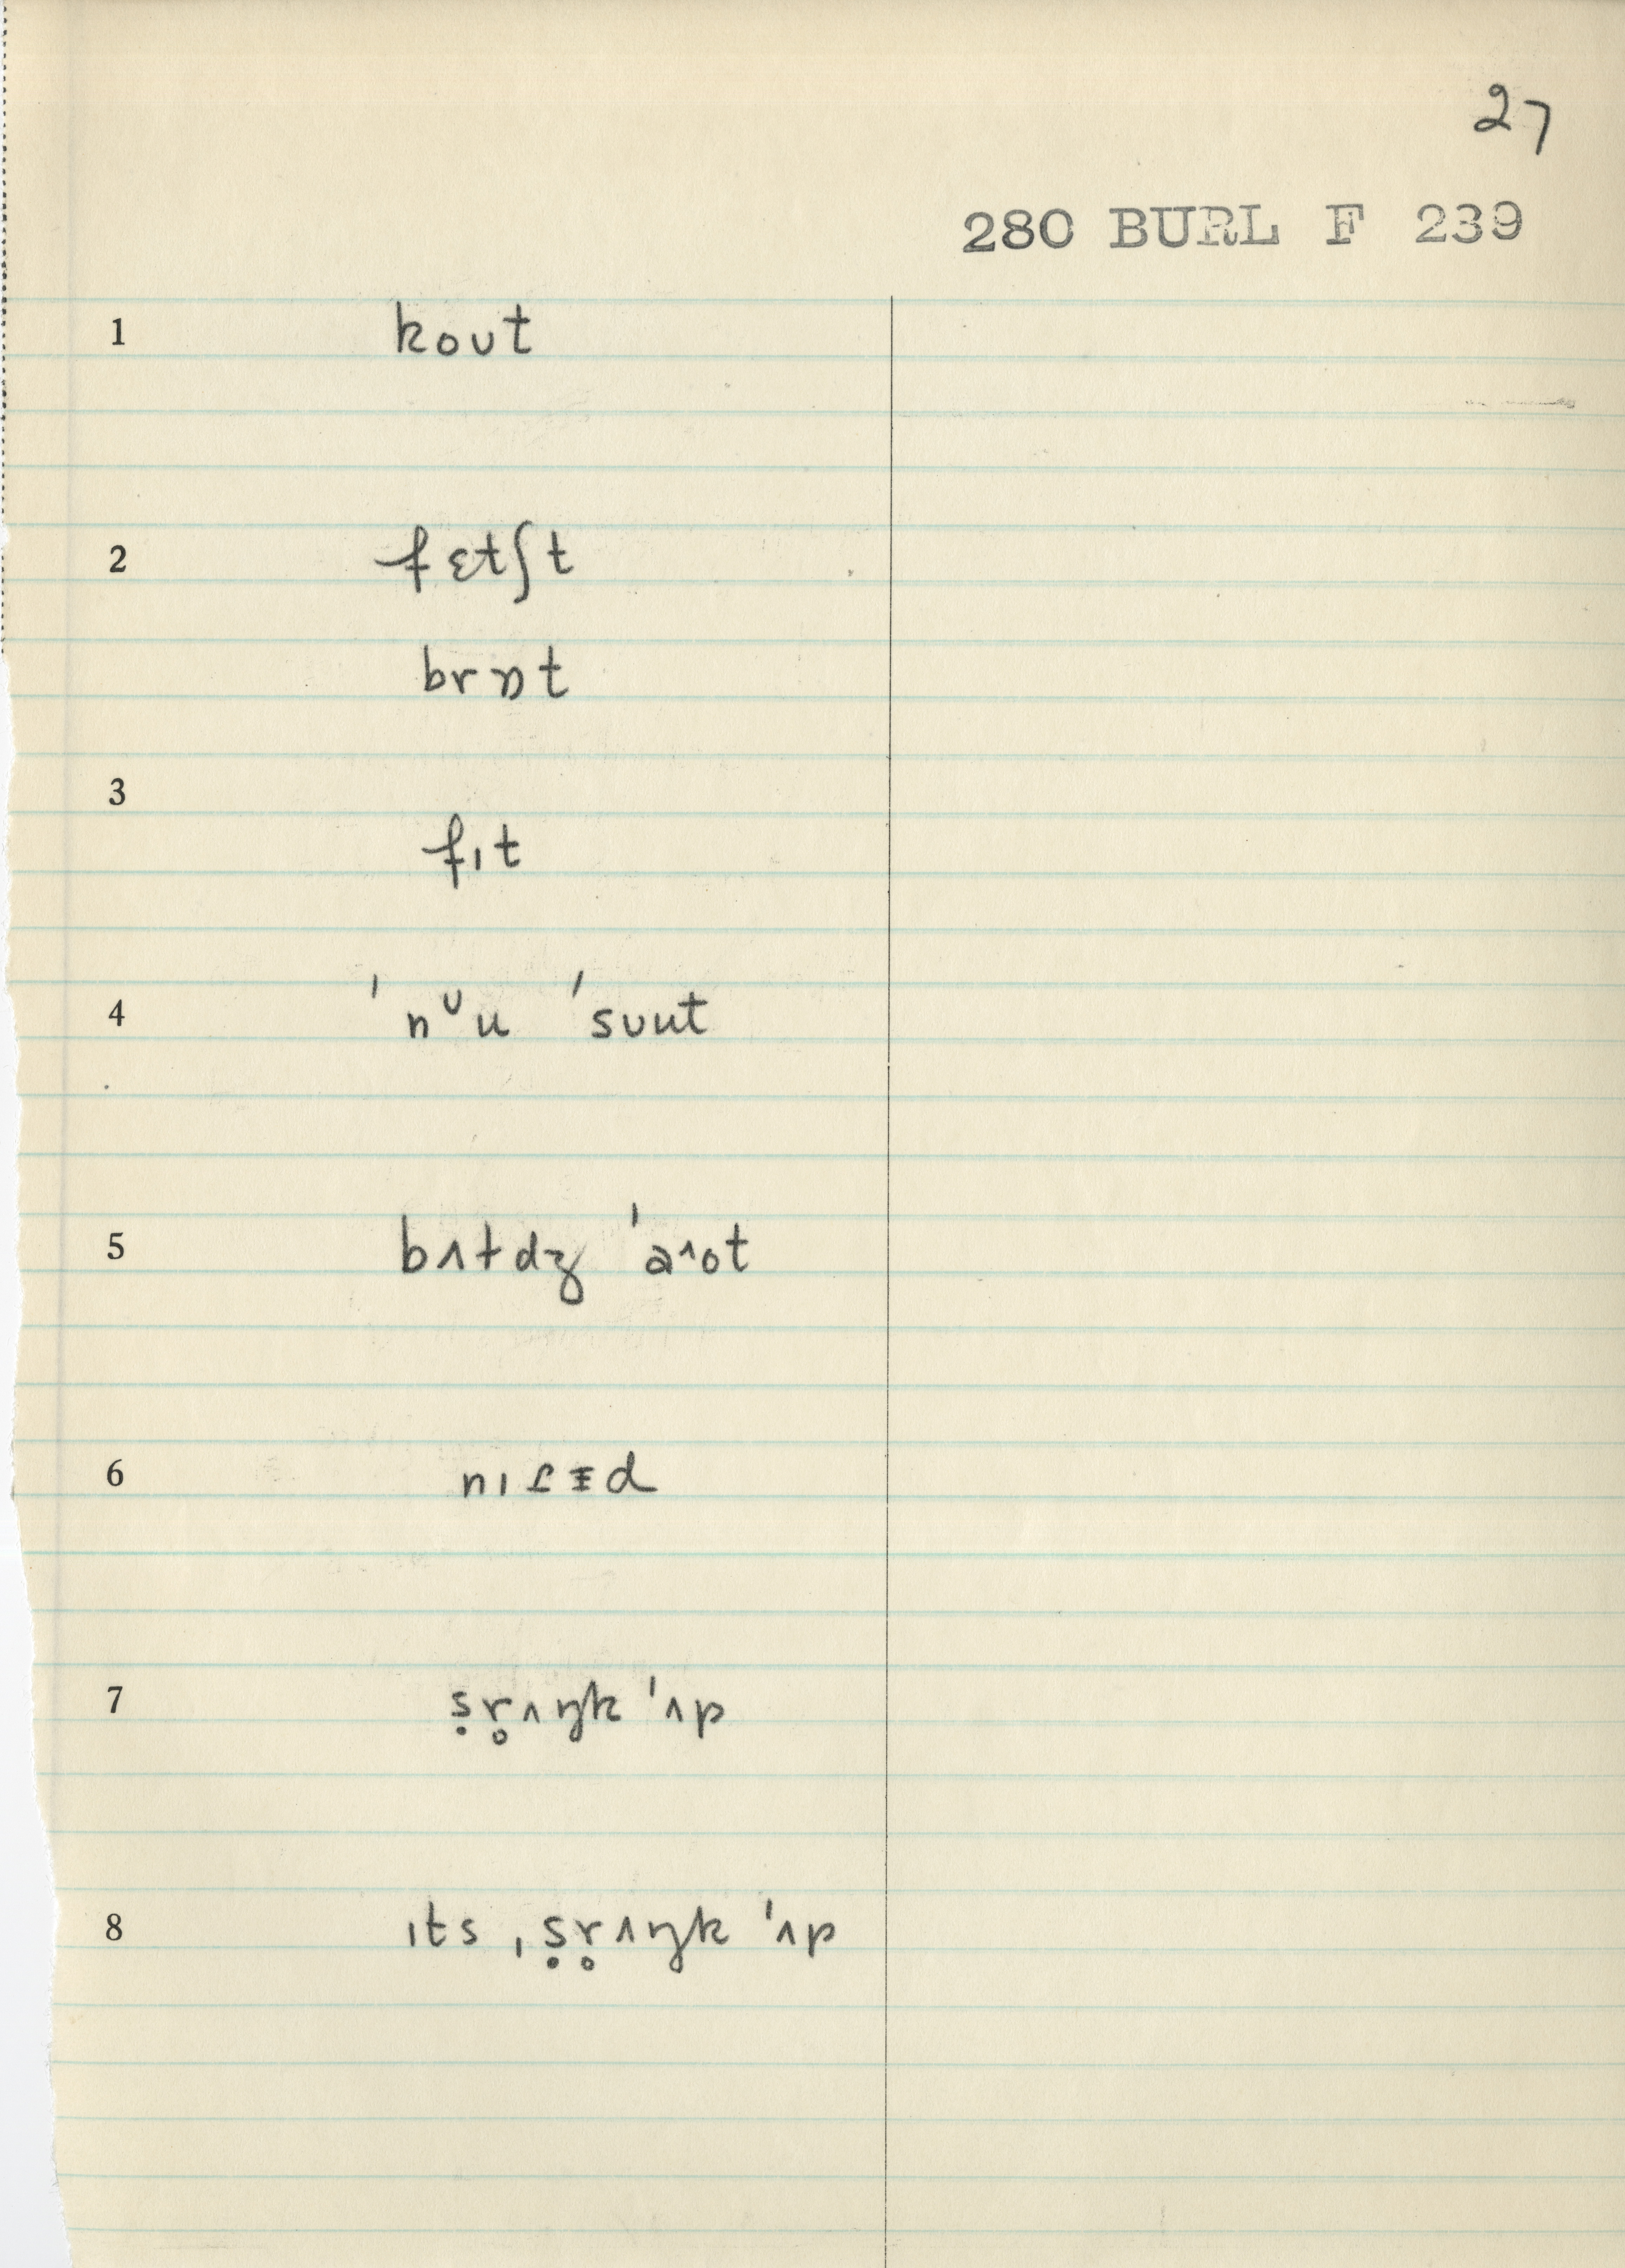 27
280 BURL F 239
1 koʊt
2 fɛtʃt
brɒt
3 fɪt
4 ˈnᶷu ˈsʊut
5 bʌɫdʒ ˈaˆot
6 nɪʃɪd
7 ṣr̥ʌŋk ˈʌp
8 ɪts ˌṣr̥ʌŋk ˈʌp